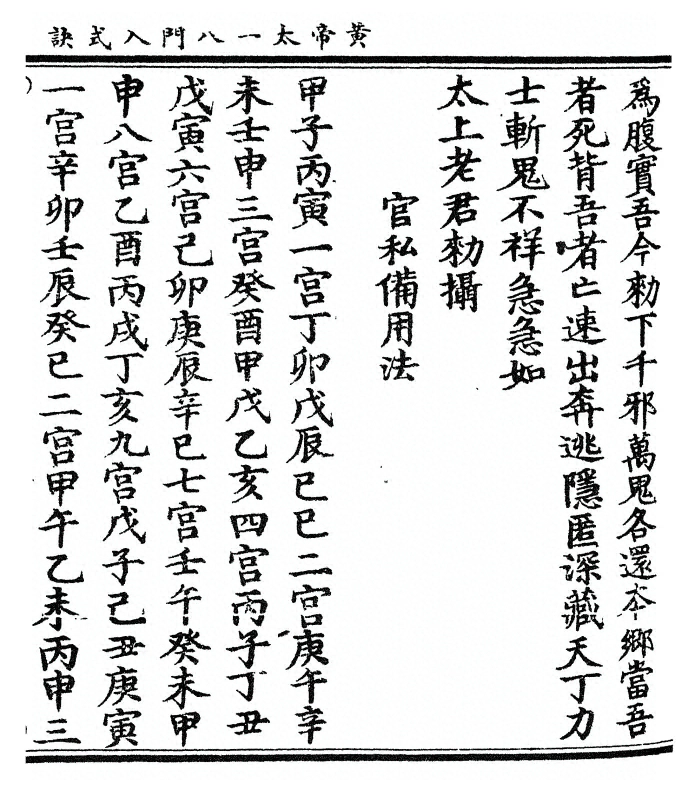 黃帝太一八門入式訣
爲腹實吾今勑下千邪萬鬼各還本鄉當吾
者死背吾者亡速出奔逃隱匿深藏天丁力
士斬鬼不祥急急如
太上老君勑攝
官私備用法
甲子丙寅一宮丁卯戊辰己巳二宮庚午辛
未壬申三宮癸酉甲戌乙亥四宮丙子丁丑
戊寅六宮己卯庚辰辛巳七宮壬午癸未甲
申八宮乙酉丙戌丁亥九宮戊子己丑庚寅
一宮辛卯壬辰癸巳二宮甲午乙未丙申三